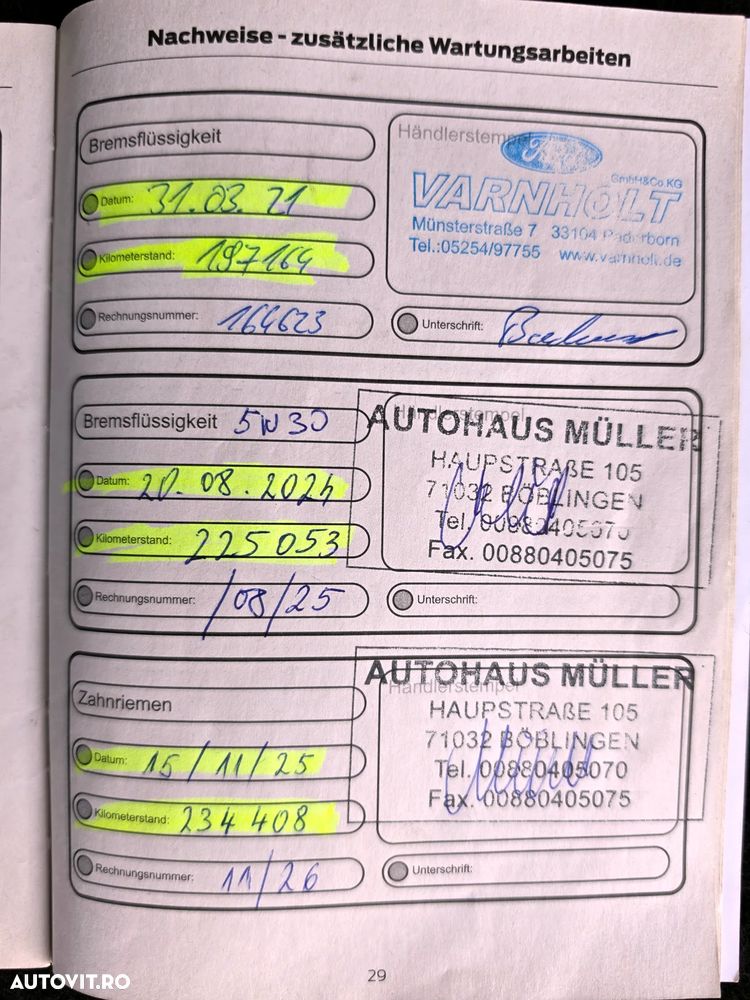 Nachweise - zusätzliche Wartungsarbeiten
Bremsflüssigkeit
Datum: 31.03.21
Kilometerstand: 197164
Rechnungsnummer: 164623
Händlerstempel
Ford
GmbH&Co.KG
VARNHOLT
Münsterstraße 7 33104 Paderborn
Tel.:05254/97755 www.varnholt.de
Unterschrift:
Bremsflüssigkeit 5W30
Datum: 20.08.2024
Kilometerstand: 225053
Rechnungsnummer: /08/25
Händlerstempel
AUTOHAUS MÜLLER
HAUPSTRAßE 105
71032 BÖBLINGEN
Tel. 00880405070
Fax. 00880405075
Unterschrift:
Zahnriemen
Datum: 15/11/25
Kilometerstand: 234408
Rechnungsnummer: 11/26
Händlerstempel
AUTOHAUS MÜLLER
HAUPSTRAßE 105
71032 BÖBLINGEN
Tel. 00880405070
Fax. 00880405075
Unterschrift:
29
AUTOVIT.RO